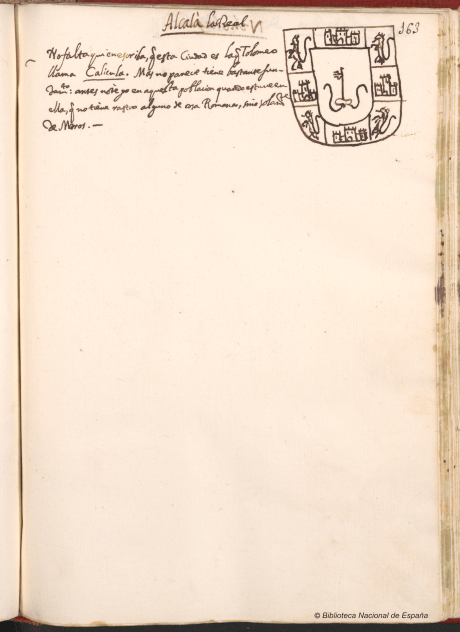 Alcalà la Real
163
No falta quien escriba, q̃ esta Ciudad es la q̃ Tolomeo
llama Calicula. Mas no parece tiene bastante fun-
dam.to: en aquesta poblacion quando estuve en
ella, q̃ no tiene rastro alguno de cosa Romana, sino solam.te
de Moros. —
© Biblioteca Nacional de España